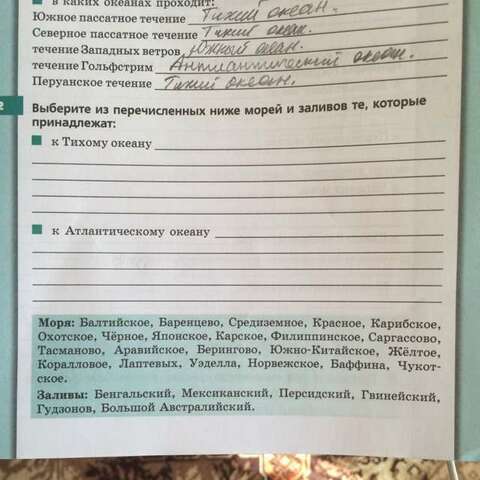 в каких океанах проходит:
Южное пассатное течение Тихий океан.
Северное пассатное течение Тихий океан.
течение Западных ветров Южный океан.
течение Гольфстрим Антлантический океан.
Перуанское течение Тихий океан.
2 Выберите из перечисленных ниже морей и заливов те, которые
принадлежат:
к Тихому океану
к Атлантическому океану
Моря: Балтийское, Баренцево, Средиземное, Красное, Карибское,
Охотское, Чёрное, Японское, Карское, Филиппинское, Саргассово,
Тасманово, Аравийское, Берингово, Южно-Китайское, Жёлтое,
Коралловое, Лаптевых, Уэделла, Норвежское, Баффина, Чукот-
ское.
Заливы: Бенгальский, Мексиканский, Персидский, Гвинейский,
Гудзонов, Большой Австралийский.